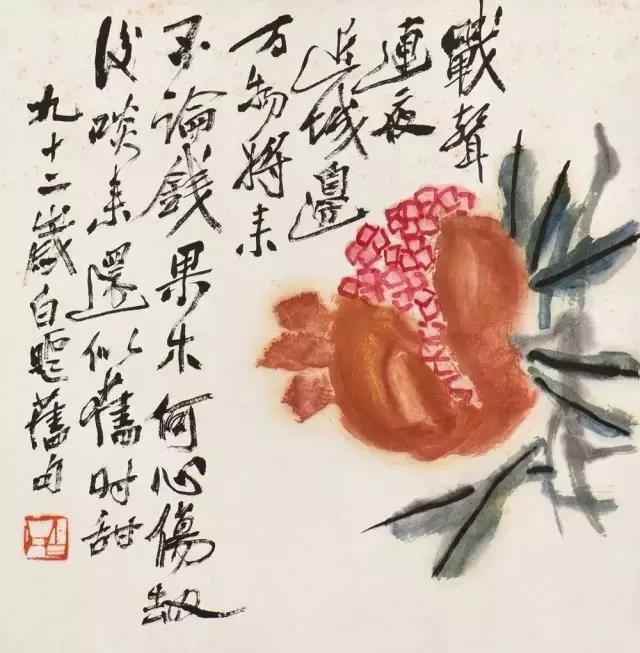 戰聲
連夜
近城邊
万物將來
不論錢果木何心傷劫
後啖來還似舊時甜
九十二歲白舊句